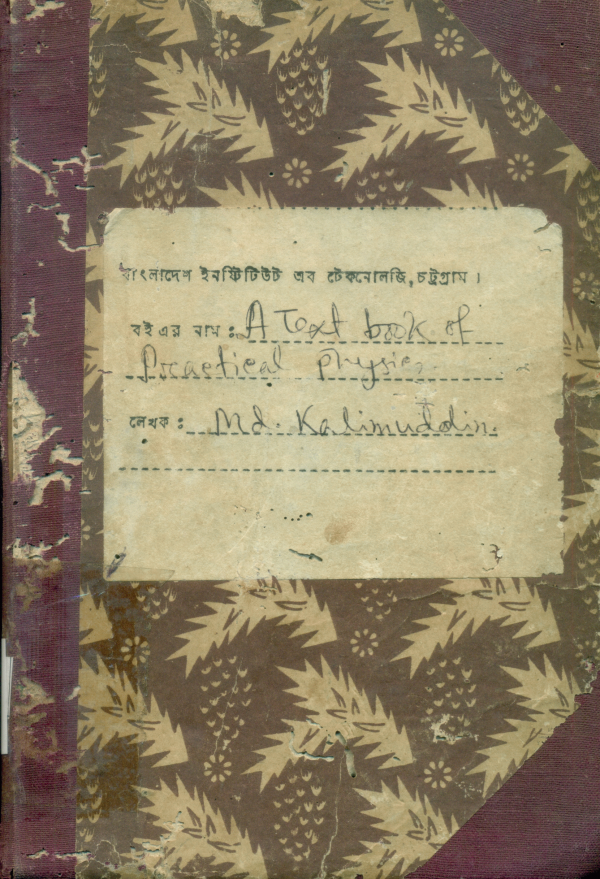 বাংলাদেশ ইনষ্টিটিউট এব টেকনোলজি, চট্টগ্রাম ।
বই এর নাম : A Text book of
Practical physics
লেখক : Md. Kalimuddin.